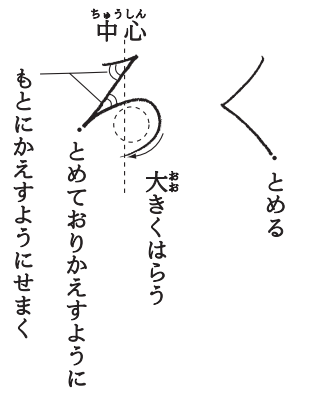 く
とめる
ちゅうしん
中心
ろ
おお
大きくはらう
とめておりかえすように
もとにかえすようにせまく